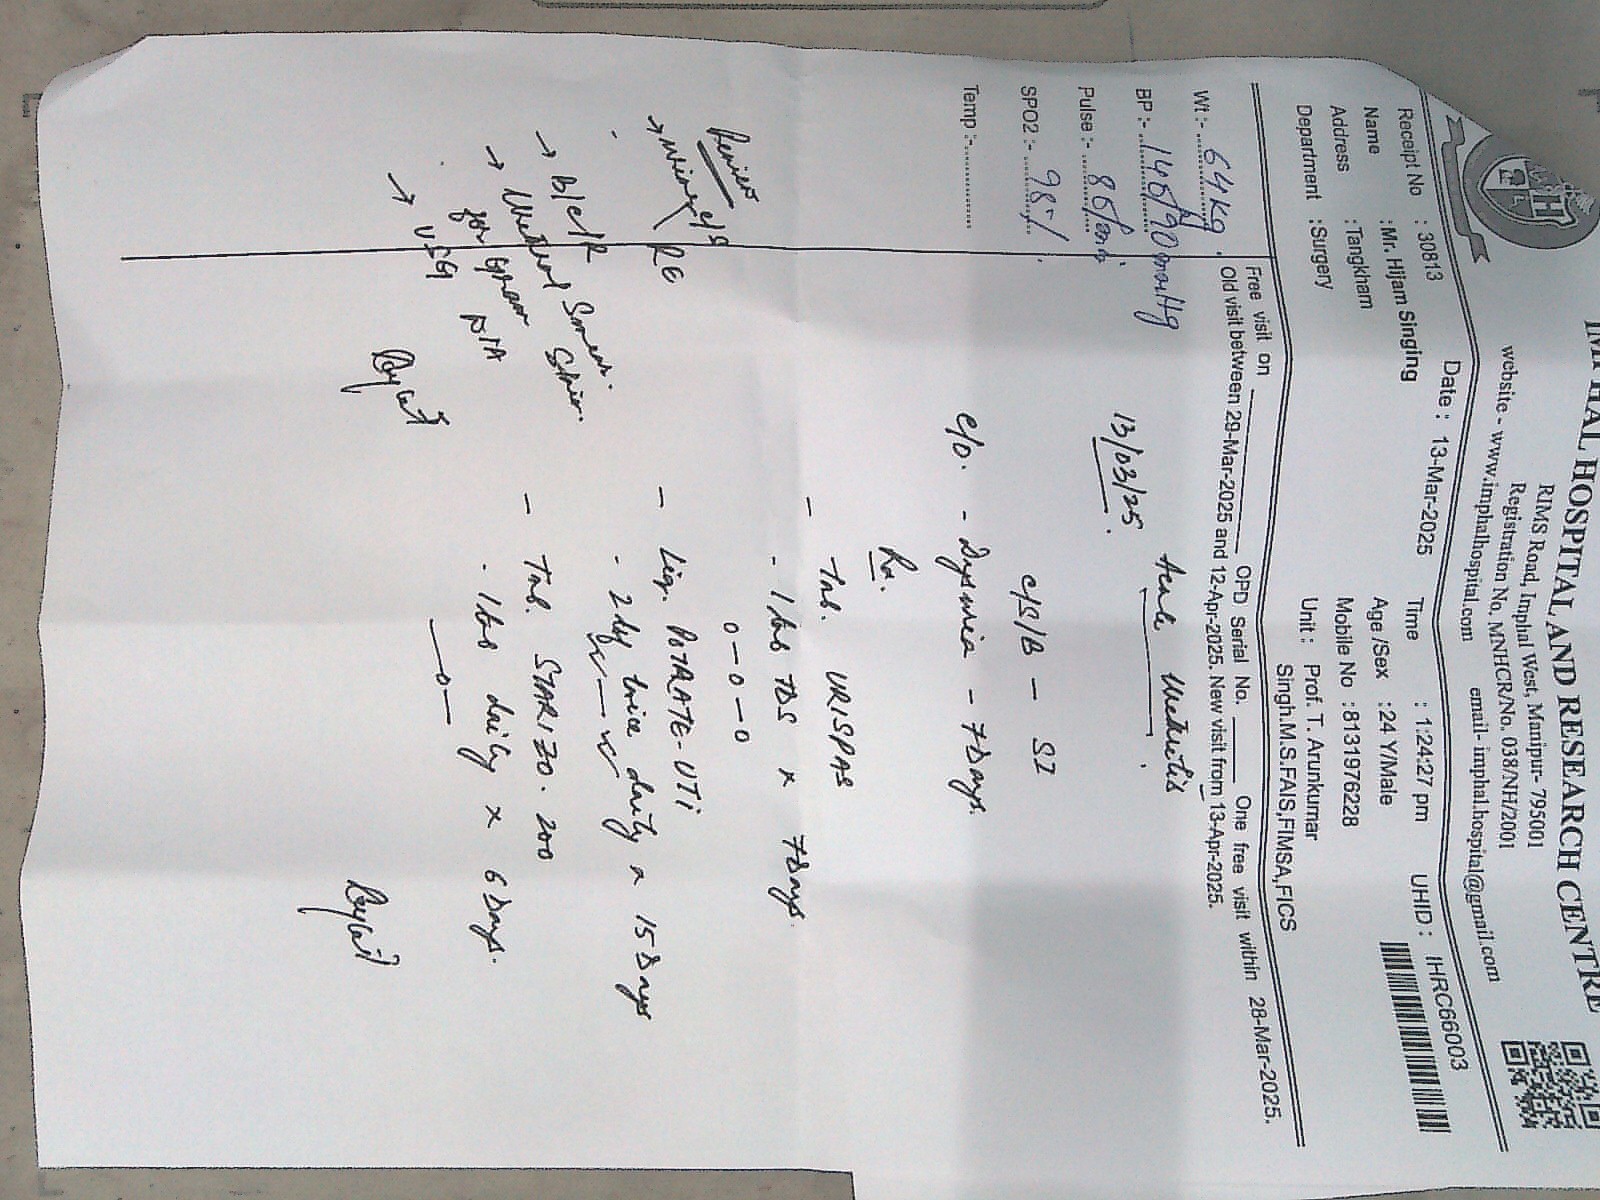 IMPHAL HOSPITAL AND RESEARCH CENTRE
RIMS Road, Imphal West, Manipur- 795001
Registration No. MNHCR/No. 038/NH/2001
website - www.imphalhospital.com email- imphal.hospital@gmail.com
Date : 13-Mar-2025 Time : 1:24:27 pm UHID : IHRC66003
Receipt No : 30813 Age /Sex : 24 Y/Male
Name :Mr. Hijam Singing Mobile No :8131976228
Address :Tangkham Unit : Prof. T. Arunkumar
Department :Surgery Singh.M.S.FAIS,FIMSA,FICS
Free visit on OPD Serial No. One free visit within 28-Mar-2025.
Old visit between 29-Mar-2025 and 12-Apr-2025. New visit from 13-Apr-2025.
Wt :- 64kg
BP :- 140/90 mmHg
Pulse :- 86/min
SPO2 :- 98%
Temp :-
13/03/25
Acute Urethritis
c/S/B - SI
c/o. - Dysuria - 7 Days.
Rx.
- Tab. URISPAS
. 1 tab TDS x 7 Days.
0-0-0
- Liq. POTRATE-UTI
. 2 tsf twice daily x 15 Days
- Tab. STARIZO. 200
. 1 tab daily x 6 Days.
Review
→ Urine c/s RE
→ B/C/R
→ Urethral Smear.
for gram Stain.
→ USG